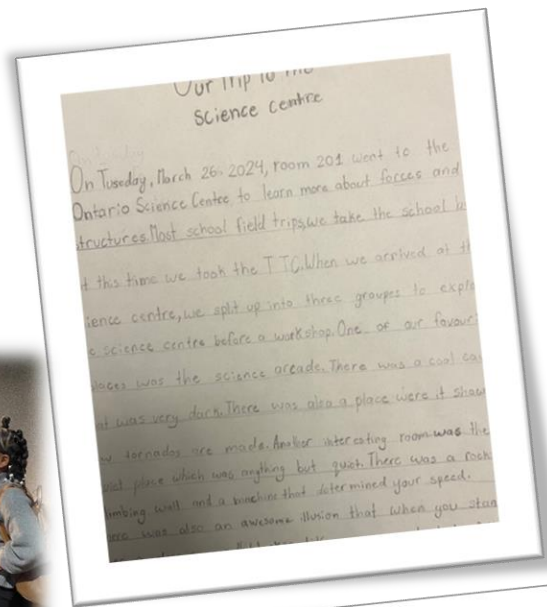 Our Trip to the
Science centre
On Tuseday, March 26, 2024, room 201 went to the
Ontario Science Centre to learn more about forces and
tructures. Most school field trips, we take the school
t this time we took the TTC. When we arrived at th
ience centre, we split up into three groupes to explo
e science centre before a workshop. One of our favour
laces was the science arcade. There was a cool ca
at was very dark. There was also a place were it show
tornados are made. Another interesting room was the
place which was anything but quiet. There was a rock
imbing wall and a that determined your speed.
ere was also an awesome illusion that when you stan